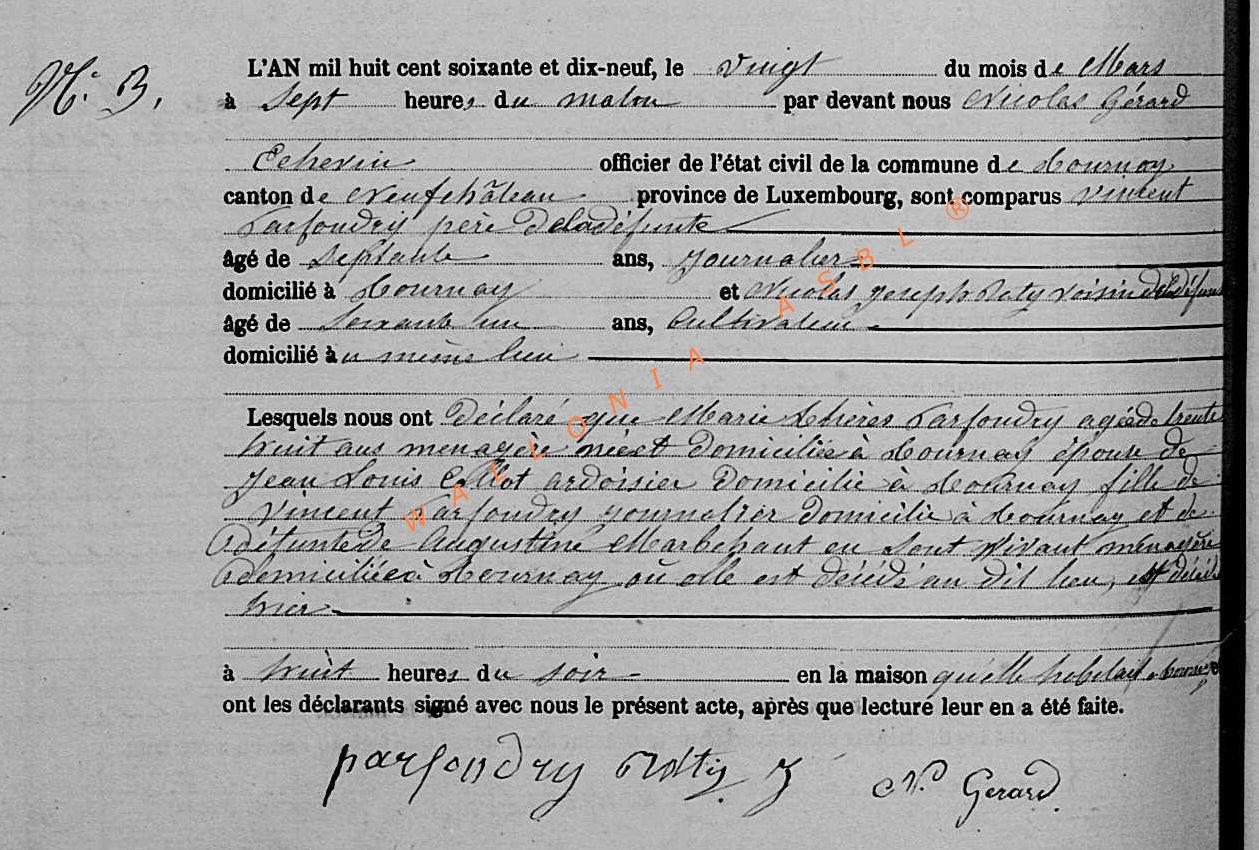 N° 3.
L'AN mil huit cent soixante et dix-neuf, le vingt du mois de Mars
à Sept heures du matin par devant nous Nicolas Gérard
Echevin officier de l'état civil de la commune de Tournay
canton de Neufchâteau province de Luxembourg, sont comparus Vincent
Parfondry père de la défunte
âgé de septante ans, Journalier
domicilié à Tournay et Nicolas Joseph Raty voisin de la défunte
âgé de Soixante un ans, Cultivateur
domicilié au même lieu
Lesquels nous ont Déclaré que Marie Thérès Parfondry agée de trente
huit ans menagère née et Domiciliée à Tournay épouse de
Jean Louis Collot ardoisier Domicilié à Tournay fille de
Vincent Parfondry journalier domicilié à Tournay et de
défunte de Augustine Marbehant en sont vivant ménagère
domiciliée à Tournay où elle est décédé au dit lieu, est décédé
hier
à huit heures du soir en la maison qu'elle habitait à Tournay et
ont les déclarants signé avec nous le présent acte, après que lecture leur en a été faite.
parfondry Raty J N. Gerard
WALLONIA ASBL ®